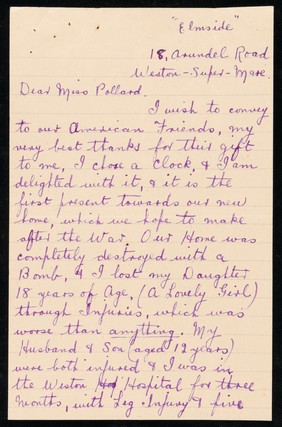 "Elmside"
18, Arundel Road
Weston-Super-Mare.
Dear Miss Pollard.
I wish to convey
to our American Friends, my
very best thanks for their gift
to me, I chose a Clock, & I am
delighted with it, & it is the
first present towards our new
home, which we hope to make
after the War. Our Home was
completely destroyed with a
Bomb, & I lost my Daughter
18 years of Age, (A Lovely Girl)
through Injuries, which was
worse than anything. My
Husband & Son (aged 12 years)
were both injured & I was in
the Weston Hospital for three
months, with Leg Injury & five